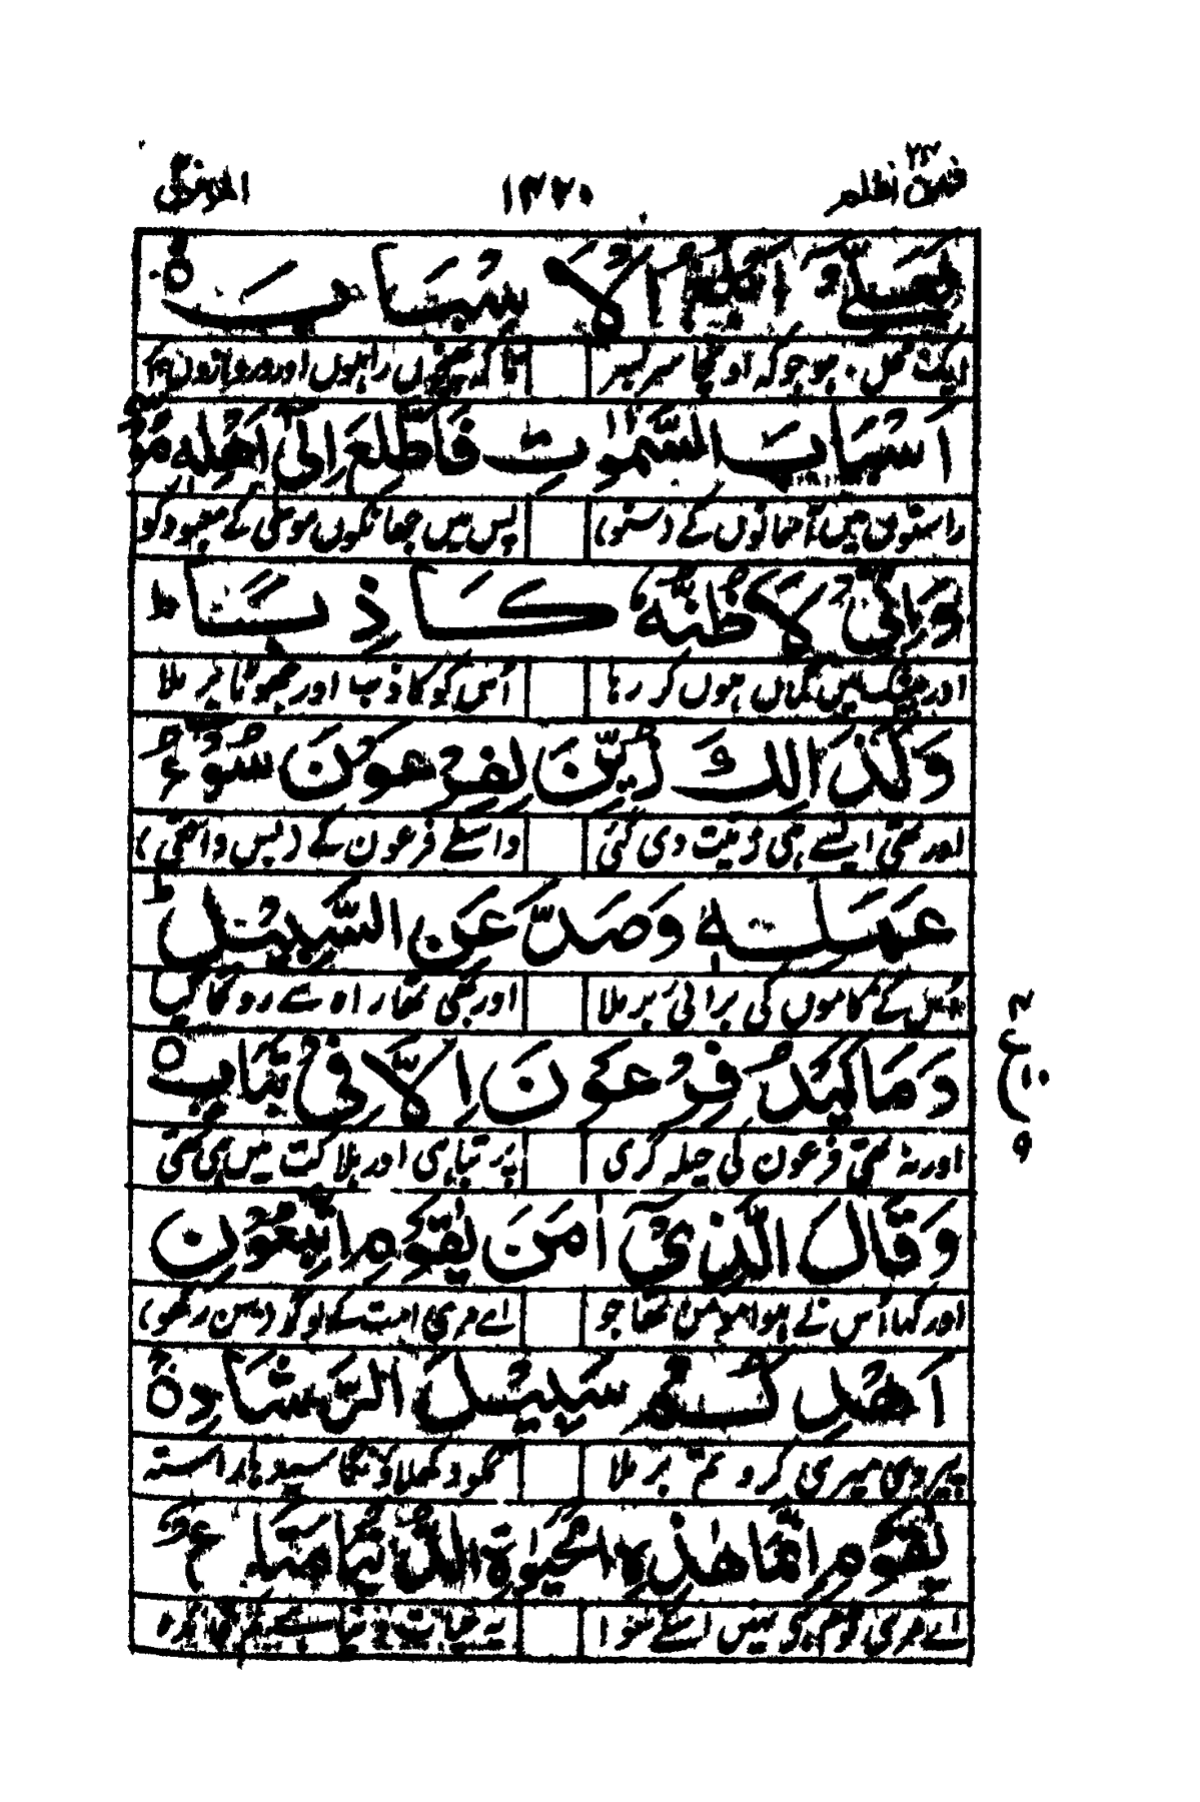 فمن اظلم ۲۴
۱۳۲۰
المؤمن
لَعَلِّیْٓ اَبْلُغُ الْاَسْبَابَ
ایک محل ہو جو کہ اونچا سر بسر
تا کہ پہنچوں راہوں اور دروازوں
اَسْبَابَ السَّمٰوٰتِ فَاَطَّلِعَ اِلٰٓی اِلٰهِ مُوْ
راستوں میں آسمانوں کے
پس میں جھانکوں موسٰی کے معبود کو
وَاِنِّیْ لَاَظُنُّهٗ کَاذِبًا ط
اور میں گماں ہوں کر رہا
اُس کو کاذب اور جھوٹا بر ملا
وَکَذٰلِکَ زُیِّنَ لِفِرْعَوْنَ سُوْٓءُ
اور تھی ایسے ہی زینت دی گئی
واسطے فرعون کے (بس واقعی)
عَمَلِهٖ وَصُدَّ عَنِ السَّبِیْلِ ط
کے کاموں کی برائی بر ملا
اور بھی تھا راہ سے روکا
وَمَا کَیْدُ فِرْعَوْنَ اِلَّا فِیْ تَبَابٍ
اور نہ تھی فرعون کی حیلہ گری
پر تباہی اور ہلاکت میں ہی تھی
وَقَالَ الَّذِیْٓ اٰمَنَ یٰقَوْمِ اتَّبِعُوْنِ
اور کہا اُس نے ہوا مومن تھا جو
اے مری امت کے لوگو (دھن رکھو)
اَهْدِکُمْ سَبِیْلَ الرَّشَادِ
پیروی میری کرو تم بر ملا
تمکو دکھلاؤنگا سیدھا راستہ
یٰقَوْمِ اِنَّمَا هٰذِهِ الْحَیٰوةُ الدُّنْیَا مَتَاعٌ
اے مری قوم نہیں اسکے سوا
یہ حیات دنیا ہے
۴
ع
۱۰
۹